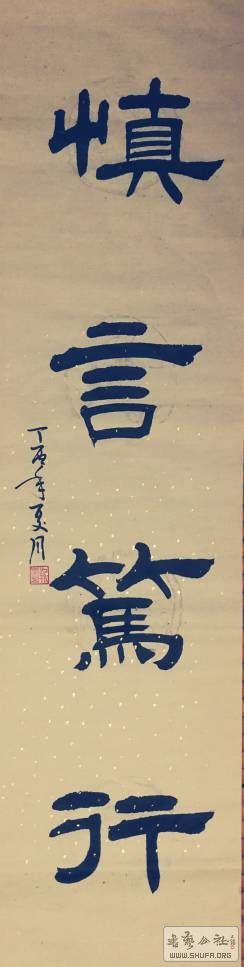 慎言篤行
丁酉年夏月
書藝公社
WWW.SHUFA.ORG